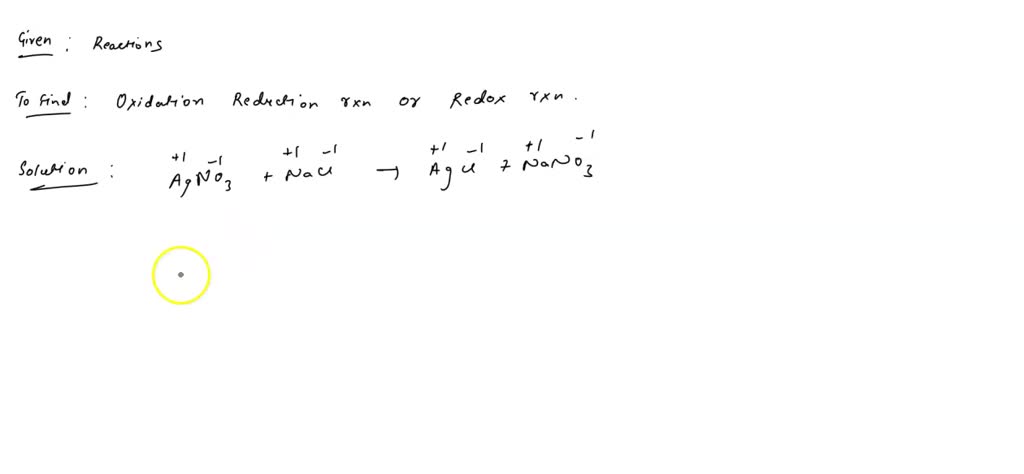 Given : Reactions
To find : Oxidation Reduction rxn or Redox rxn.
+1 -1 +1 -1 +1 -1 +1 -1
Solution : AgNO3 + NaCl → AgCl + NaNO3